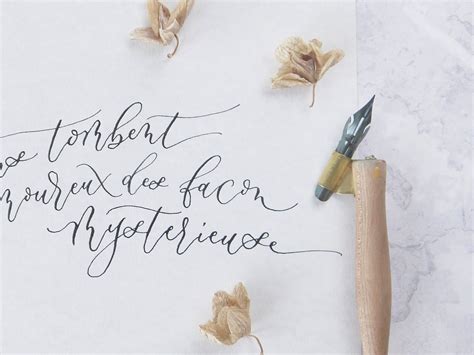 tombent
moureux des facon
Mysterieuse